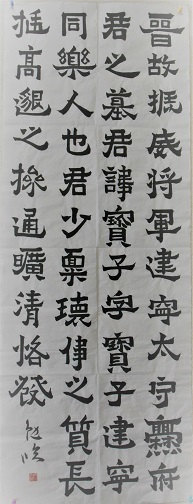 晉故振威将軍建寧太守爨府
君之墓君諱寶子字寶子建寧
同樂人也君少稟瓌偉之質長
挺高邈之操通曠清恪發
临